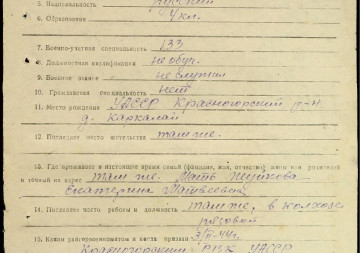 5. Национальность русский
6. Образование 4 кл.
7. Военно-учетная специальность 133
8. Должностная квалификация не обуч.
9. Военное звание не служил
10. Гражданская специальность нет
11. Место рождения УАССР Красногорский р-н
д. Каркалай
12. Последнее место жительства там же.
13. Где проживает в настоящее время семья (фамилия, имя, отчество) жены или родителей
и точный их адрес там же. Мать
Екатерина Матвеевна
14. Последнее место работы и должность там же, в колхозе
рядовой
15. Каким райгорвоенкоматом и когда призван
Красногорским РВК УАССР